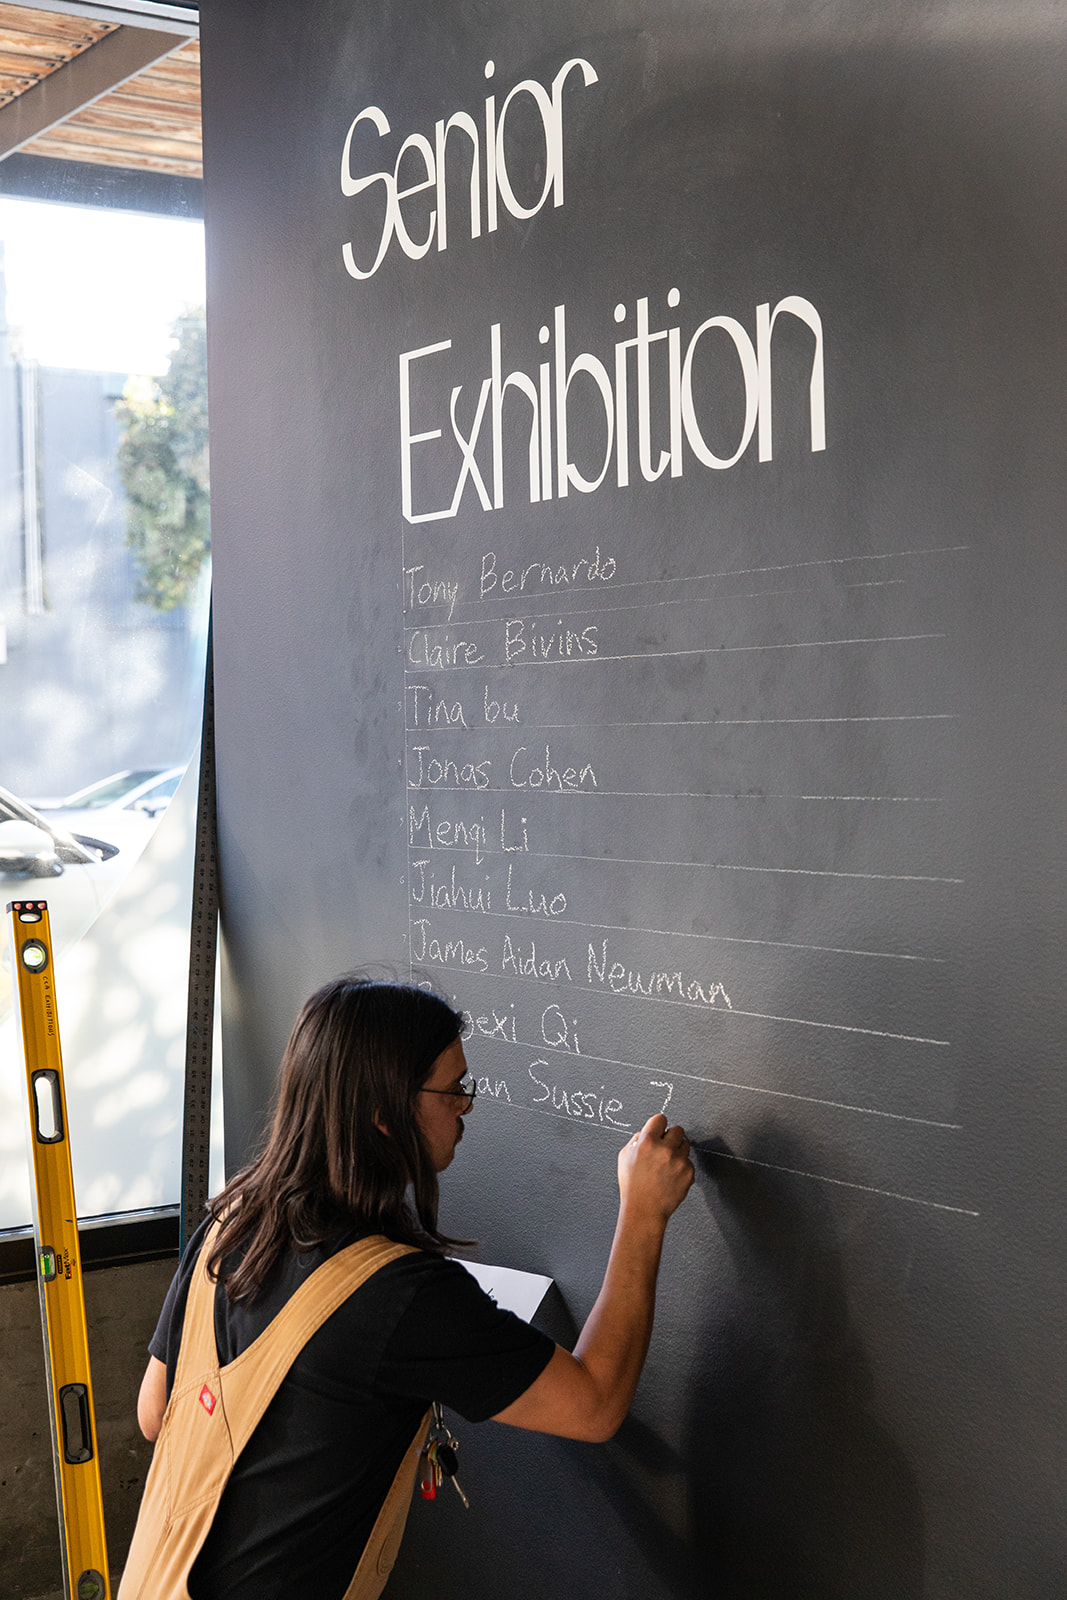 Senior
Exhibition
Tony Bernardo
Claire Bivins
Tina bu
Jonas Cohen
Menqi Li
Jiahui Luo
James Aidan Newman
Qi
Sussie Z
CCA EXHIBITIONS
FatMax